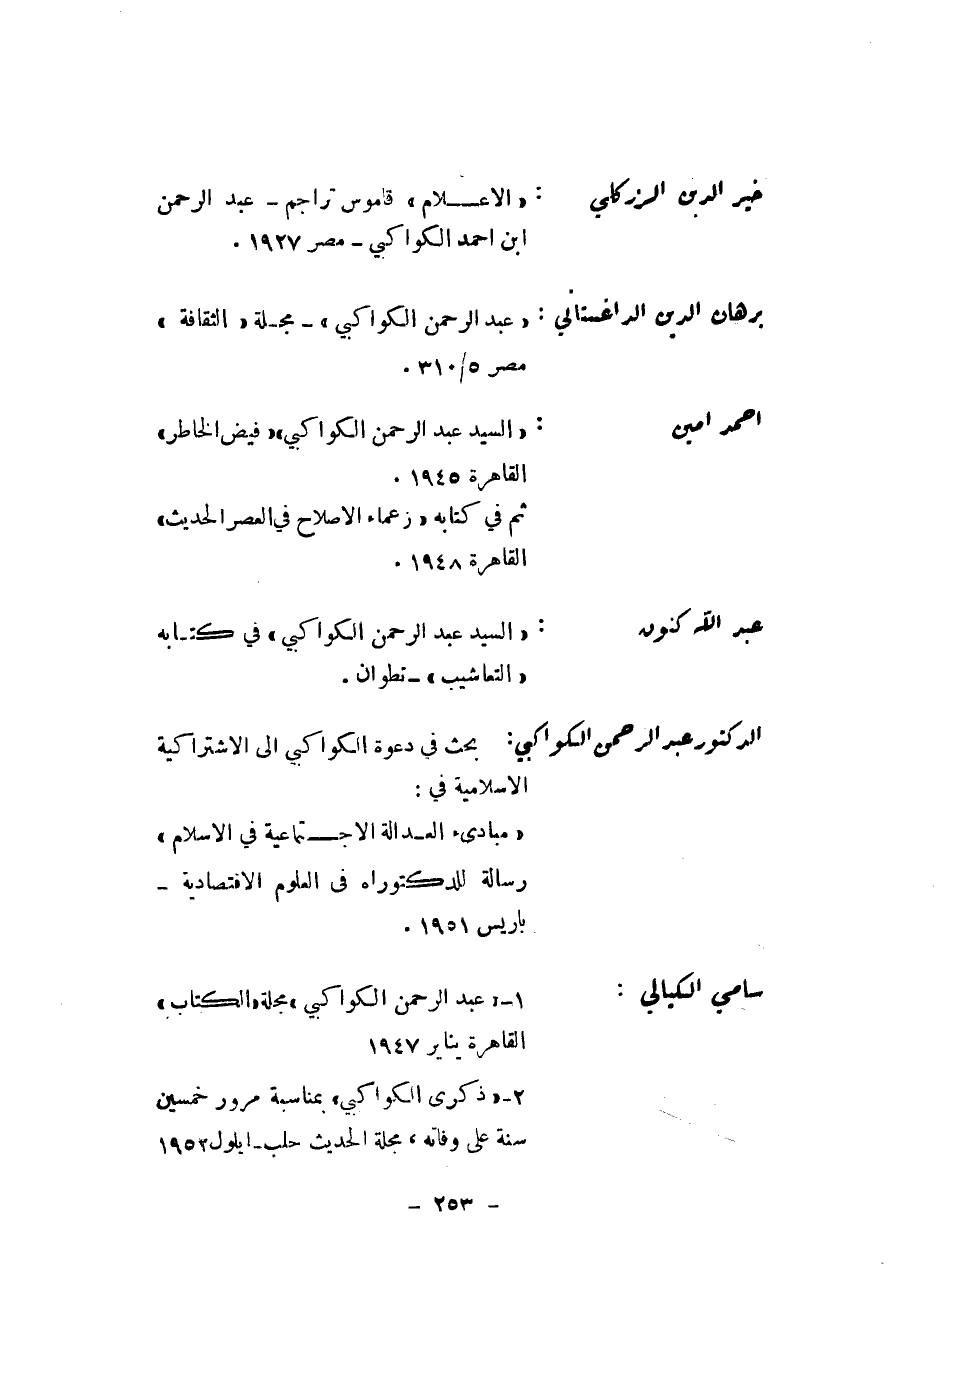 خير الدين الزركلي : « الاعـــلام » قاموس تراجم ـ عبد الرحمن
ابن احمد الكواكبي ـ مصر ١٩٢٧ .
برهان الدين الداغستاني : « عبد الرحمن الكواكبي » ـ مجـلة « الثقافة »
مصر ٣١٠/٥ .
احمد امين : « السيد عبد الرحمن الكواكبي»« فيض الخاطر»
القاهرة ١٩٤٥ .
ثم في كتابه « زعماء الاصلاح في العصر الحديث»
القاهرة ١٩٤٨ .
عبد الله كنون : « السيد عبد الرحمن الكواكبي » في كتـابه
« التعاشيب » ـ تطوان .
الدكتور عبد الرحمن الكواكبي: بحث في دعوة الكواكبي الى الاشتراكية
الاسلامية في :
« مبادىء العـدالة الاجـــتماعية في الاسلام »
رسالة للدكتوراه فى العلوم الاقتصادية ـ
باريس ١٩٥١ .
سامي الكيالي : ١-« عبد الرحمن الكواكبي »مجلة«الكتاب »
القاهرة يناير ١٩٤٧
٢-« ذكرى الكواكبي» بمناسبة مرور خمسين
سنة على وفاته ، مجلة الحديث حلب ـ ايلول ١٩٥٢
ـ ٢٥٣ ـ